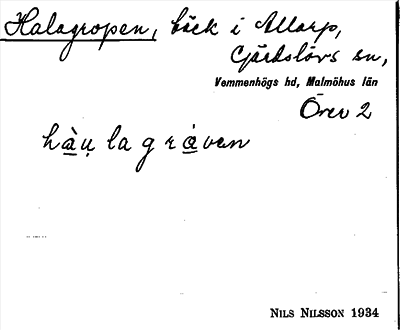 Halagropen, bäck i Allarp,
Gärdslövs sn,
Vemmenhögs hd, Malmöhus län
Örev 2
hàu̯ la g r ȧ̀ ven
NILS NILSSON 1934